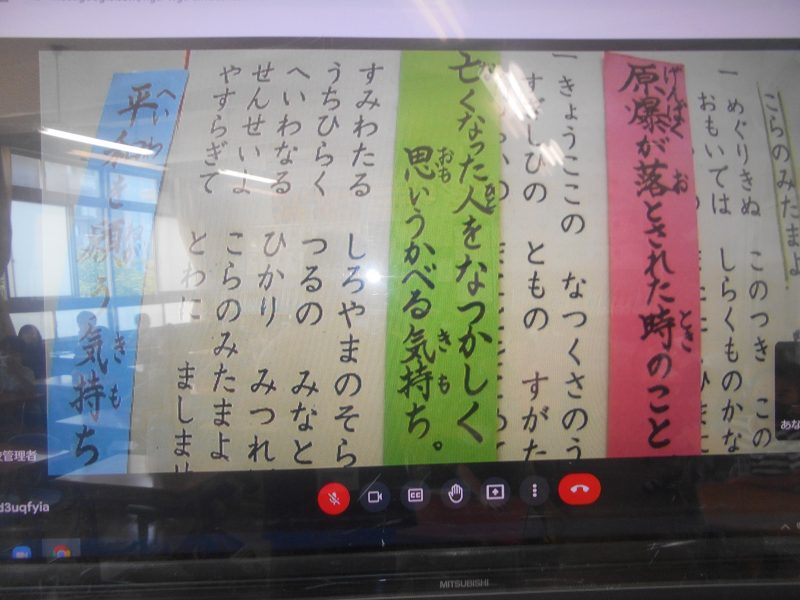 こらのみたまよ
一 めぐりきぬ このつき この
おもいでは しらくものかな
原爆が落とされた時のこと
げんばく お とき
一 きょうここの なつくさのう
ともの すがた
亡くなった人をなつかしく
思いうかべる気持ち。
おも きも
すみわたる しろやまのそら
うちひらく つるの みなと
へいわなる ひかり みつれ
せんせいよ こらのみたまよ
やすらぎて とわに ましませ
平和を願う気持ち
へいわ きも
管理者
d3uqfyia
あな
MITSUBISHI